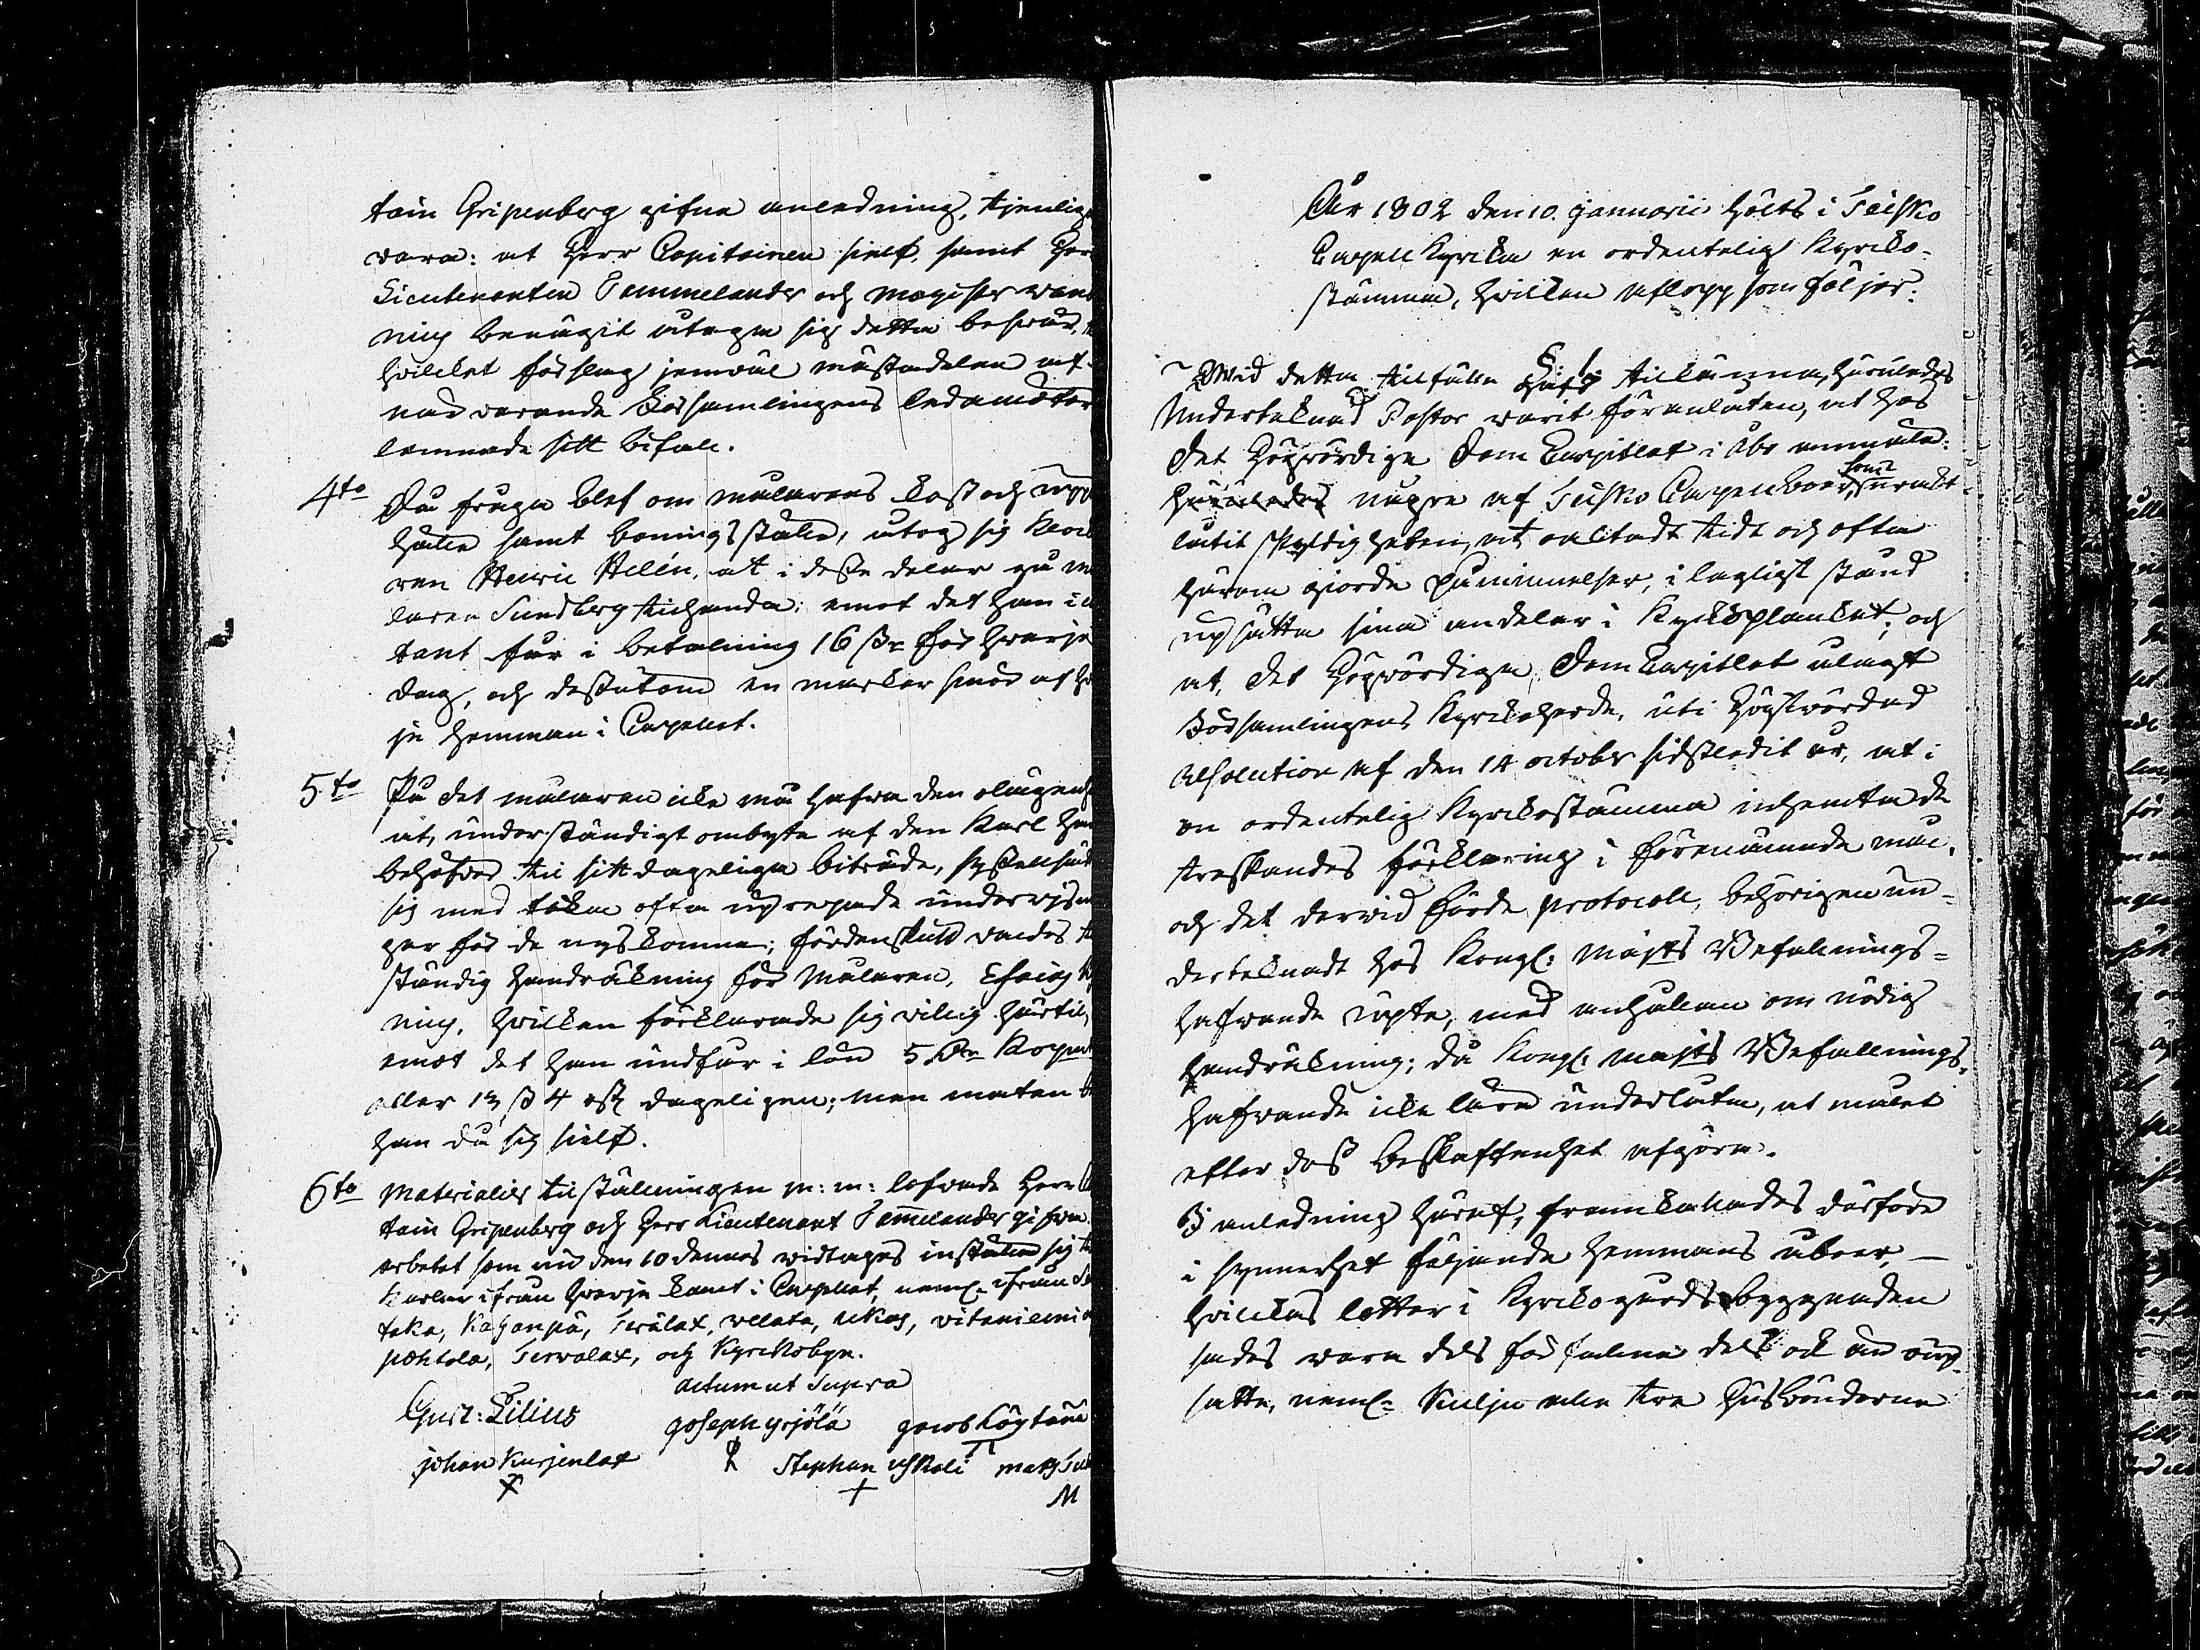 tain Gripenberg gifne anledning, tjenligt
vara: at Herr Capitainen sielf, samt Herr
Lieutenanten Temmelander och Magister
ning benägit utaga sig detta beswär,
hvilket förslag jemväl mästadelen af
närvarande Församlingens ledamöter
lemnade sitt bifall.
4to Då fråga blef om målarens kost och
hålle samt boningsställe, utog sig
ren Henric Helén, at i desse delar gå
laren Sundberg tilhanda; emot det han
tant får i betalning 16 sk för hvarje
dag, och desutom en marker smör af
je hemman i Capellet.
5to På det målaren icke må hafva den olägenhet
at, underståndigt ombyte af den Karl han
behöfver til sitt dageliga biträde, sysselsätta
sig med täta ofta uprepade underwisnin
gar för de nyskomne; fördenskull valdes
ständig handräkning för Målaren, Esaias
ning, hvilken förklarade sig villig härtil,
emot det han undfår i lön 5 Dlr Kopm
eller 13 sk 4 rst dageligen; men maten
han då sig sielf.
6to Materialier til stälningen m: m: lofvade Herr
tain Gripenberg och Herr Lieutenant Temelander gifva.
arbetet som nu den 10 dennes widtages instäler sig
Karlar ifrån hvarje kant i Capellet, neml. ifrån
taka, Kåhonpä, Terälax, Vellata, Ukas, Vitaniemi
pohtola, Tervalax, och Kyrkobyn.
Actum ut Supra
Gust: Lilius Joseph Yrjölä Jacob Högtäna
Johan Kurjenlax Stephan Uskali Matts
M
År 1802 den 10 Januarii hölts i Teisko
Capell Kyrka en ordentelig Kyrko-
stämma, hvilken aflopp som följer:
§. 1
Wid detta tilfälle tilkänna, huruledes
Undertecknad Pastor varit föranlåten, at hos
det Högvördiga Dom Capitlet i Åbo anmäla:
huruledes några af Teisko Capellboer, som uraktå-
låtit skyldigheten, at oaktadt tidt och ofta
härom gjorde påminnelser, i lagligt stånd
upsätta sina andelar i Kyrkoplanket; och
at, det Högvördiga Dom Capitlet ålagt
Församlingens Kyrkoherde, uti Högstvördad
resolution af den 14 october sidstledit år, at i
en ordentelig Kyrkostämma inhemta de
treskandes förklaring i förenämnde mål,
och det dervid förde protocoll, behörigen un-
derteknadt hos Kongl: Majts Befallnings=
hafvande upte, med anhållan om nödig
handräkning; då Kongl: Majts Befallnings-
hafvande icke lärer underlåta, at målet
efter dess beskaffenhet afgöra.
I anledning häraf, framkallades därföre
i synnerhet följande hemmans åboer, —
hvilkas lotter i Kyrkogårdsbyggnaden
sades vara dels förfallne dels ock än oup-
satte, neml: Kulju alla tre Husbönderne